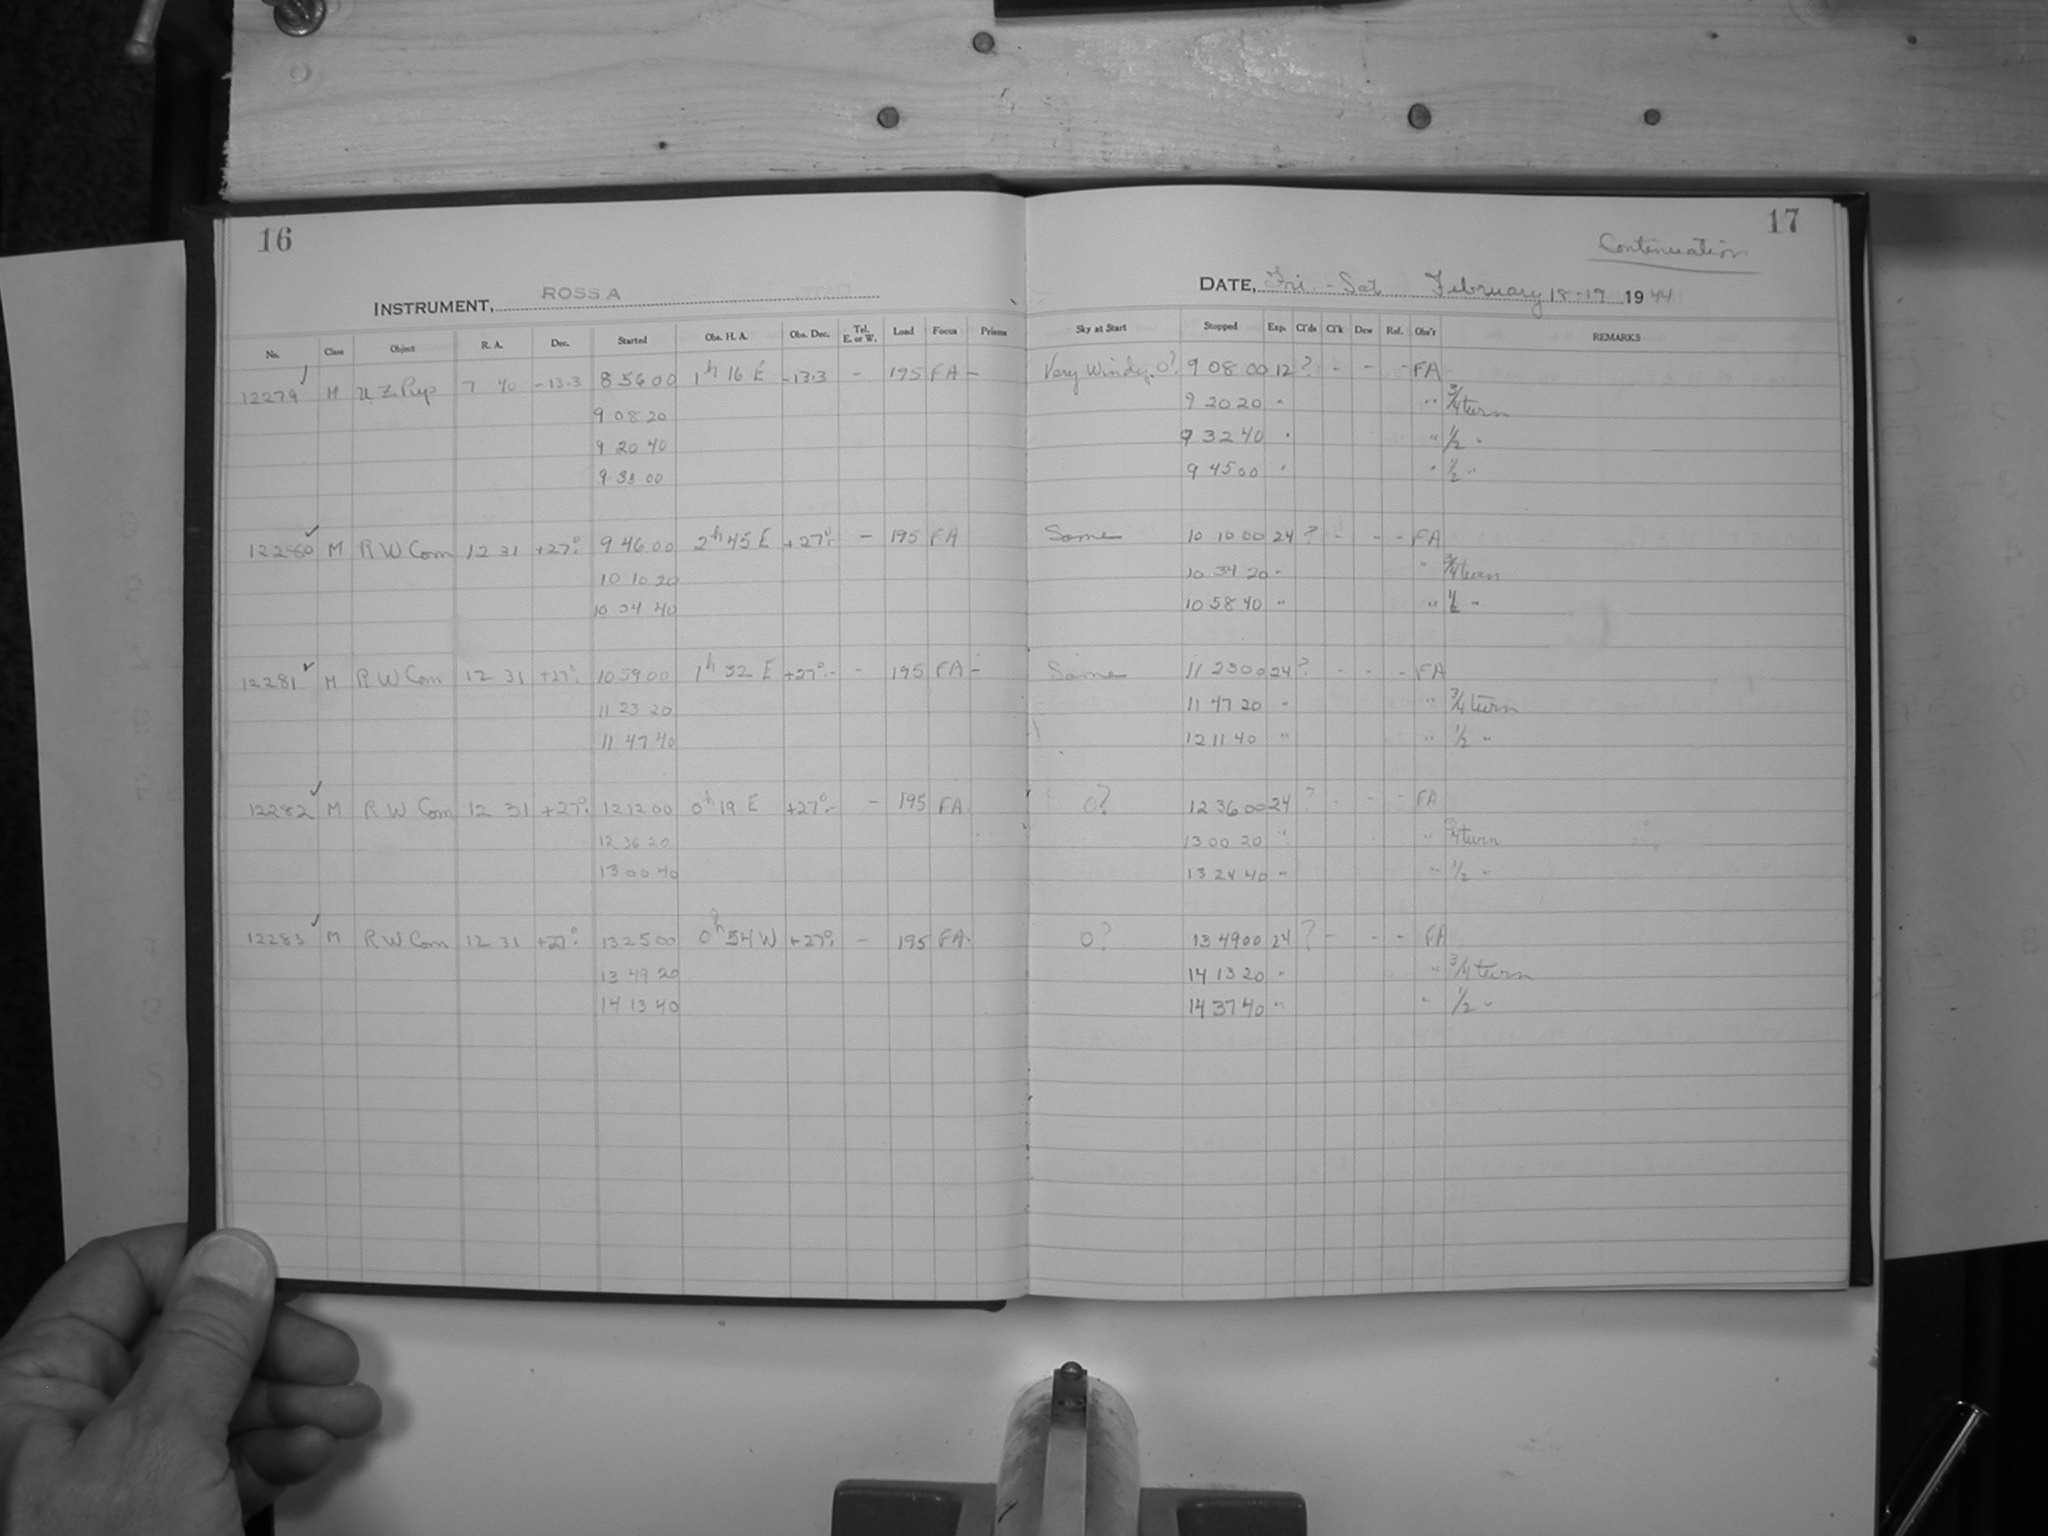 16
INSTRUMENT, ROSS A
No. Class Object R. A. Dec. Started Obs. H. A. Obs. Dec. Tel. E. or W. Load Focus Prisms
12279 M UZ Pup 7 40 -13.3 8 56 00 1h 16 E -13.3 - 195 FA -
9 08 20
9 20 40
9 33 00
12280 M RW Com 12 31 +27° 9 46 00 2h 45 E +27° - 195 FA
10 10 20
10 34 40
12281 M RW Com 12 31 +27° 10 59 00 1h 32 E +27° - 195 FA -
11 23 20
11 47 40
12282 M RW Com 12 31 +27° 12 12 00 0h 19 E +27° - 195 FA
12 36 20
13 00 40
12283 M RW Com 12 31 +27° 13 25 00 0h 54 W +27° - 195 FA
13 49 20
14 13 40
17
Continuation
DATE, Fri. - Sat February 18-19 1944
Sky at Start Stopped Exp. Cl'ds Cl'k Dew Ref. Obs'r REMARKS
Very Windy. 0? 9 08 00 12 ? - - - FA
9 20 20 " " 3/4 turn
9 32 40 " " 1/2 "
9 45 00 " " 1/2 "
Same 10 10 00 24 ? - - - FA
10 34 20 " " 3/4 turn
10 58 40 " " 1/2 "
Same 11 23 00 24 ? - - - FA
11 47 20 " " 3/4 turn
12 11 40 " " 1/2 "
0? 12 36 00 24 ? - - - FA
13 00 20 " " 3/4 turn
13 24 40 " " 1/2 "
0? 13 49 00 24 ? - - - FA
14 13 20 " " 3/4 turn
14 37 40 " " 1/2 "